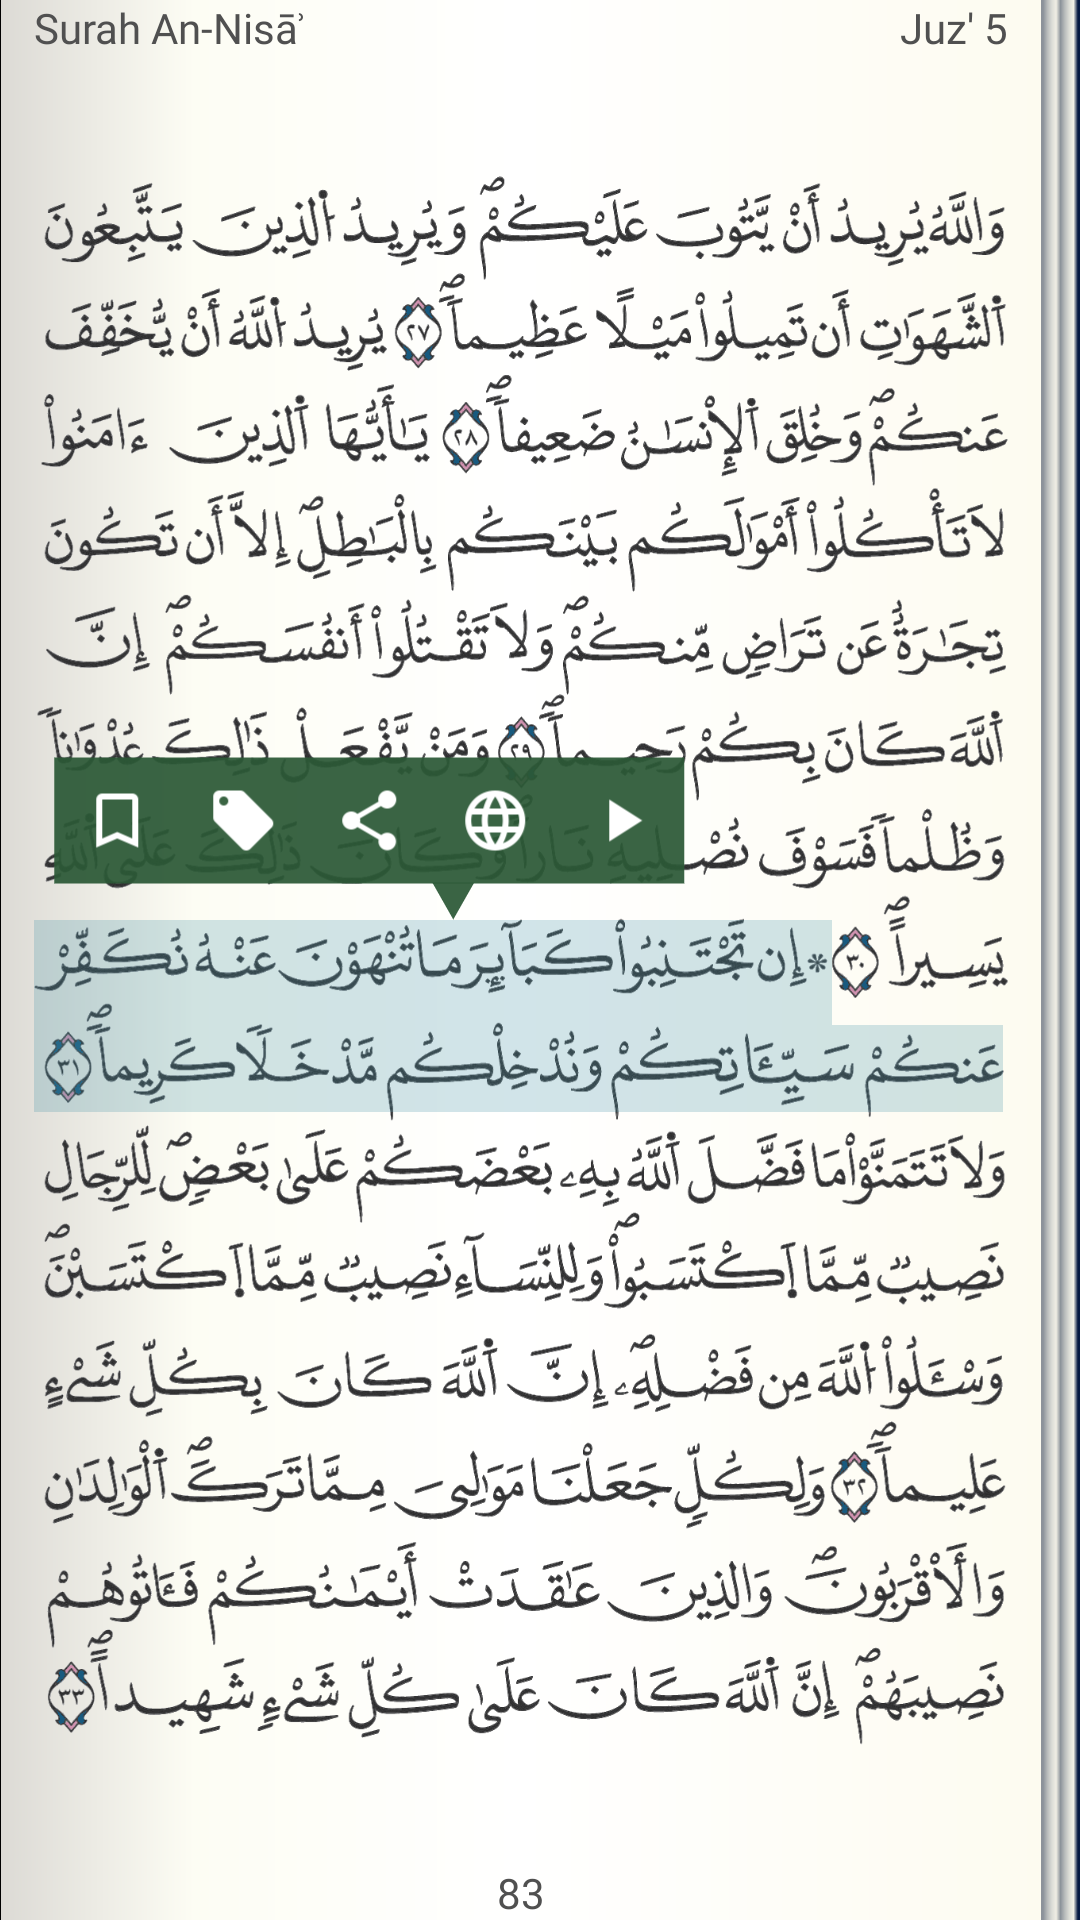 Surah An-Nisāʾ
Juz' 5
وَاللَّهُ يُرِيدُ أَنْ يَّتُوبَ عَلَيْكُمْۖ وَيُرِيدُ اُ۬لذِينَ يَتَّبِعُونَ
اَ۬لشَّهَوَٰتِ أَن تَمِيلُواْ مَيْلًا عَظِيماٗۖ ٢٧ يُرِيدُ اُ۬للَّهُ أَنْ يُّخَفِّفَ
عَنكُمْۖ وَخُلِقَ اَ۬لِانسَٰنُ ضَعِيفاٗۖ ٢٨ يَٰأَيُّهَا اَ۬لذِينَ ءَامَنُواْ
لَا تَأْكُلُواْ أَمْوَٰلَكُم بَيْنَكُم بِالْبَٰطِلِۖ إِلَّا أَن تَكُونَ
تِجَٰرَةٌ عَن تَرَاضٖ مِّنكُمْۖ وَلَا تَقْتُلُواْ أَنفُسَكُمْۖ إِنَّ
اَ۬للَّهَ كَانَ بِكُمْ رَحِيماٗۖ ٢٩ وَمَنْ يَّفْعَلْ ذَٰلِكَ عُدْوَٰناٗ
وَظُلْماٗ فَسَوْفَ نُصْلِيهِ نَاراٗ وَكَانَ ذَٰلِكَ عَلَي اَ۬للَّهِ
يَسِيراًۖ ٣٠ * إِن تَجْتَنِبُواْ كَبَآئِرَ مَا تُنْهَوْنَ عَنْهُ نُكَفِّرْ
عَنكُمْ سَيِّـَٔاتِكُمْ وَنُدْخِلْكُم مَّدْخَلًا كَرِيماٗۖ ٣١
وَلَا تَتَمَنَّوْاْ مَا فَضَّلَ اَ۬للَّهُ بِهِۦ بَعْضَكُمْ عَلَىٰ بَعْضٖۖ لِّلرِّجَالِ
نَصِيبٞ مِّمَّا اَ۪كْتَسَبُواْۖ وَلِلنِّسَآءِ نَصِيبٞ مِّمَّا اَ۪كْتَسَبْنَۖ
وَسْـَٔلُواْ اُ۬للَّهَ مِن فَضْلِهِۦۖ إِنَّ اَ۬للَّهَ كَانَ بِكُلِّ شَيْءٍ
عَلِيماٗۖ ٣٢ وَلِكُلّٖ جَعَلْنَا مَوَٰلِيَ مِمَّا تَرَكَۖ اَ۬لْوَٰلِدَٰنِ
وَالَاقْرَبُونَۖ وَالذِينَ عَٰقَدَتْ أَيْمَٰنُكُمْ فَـَٔاتُوهُمْ
نَصِيبَهُمْۖ إِنَّ اَ۬للَّهَ كَانَ عَلَىٰ كُلِّ شَيْءٖ شَهِيداًۖ ٣٣
83